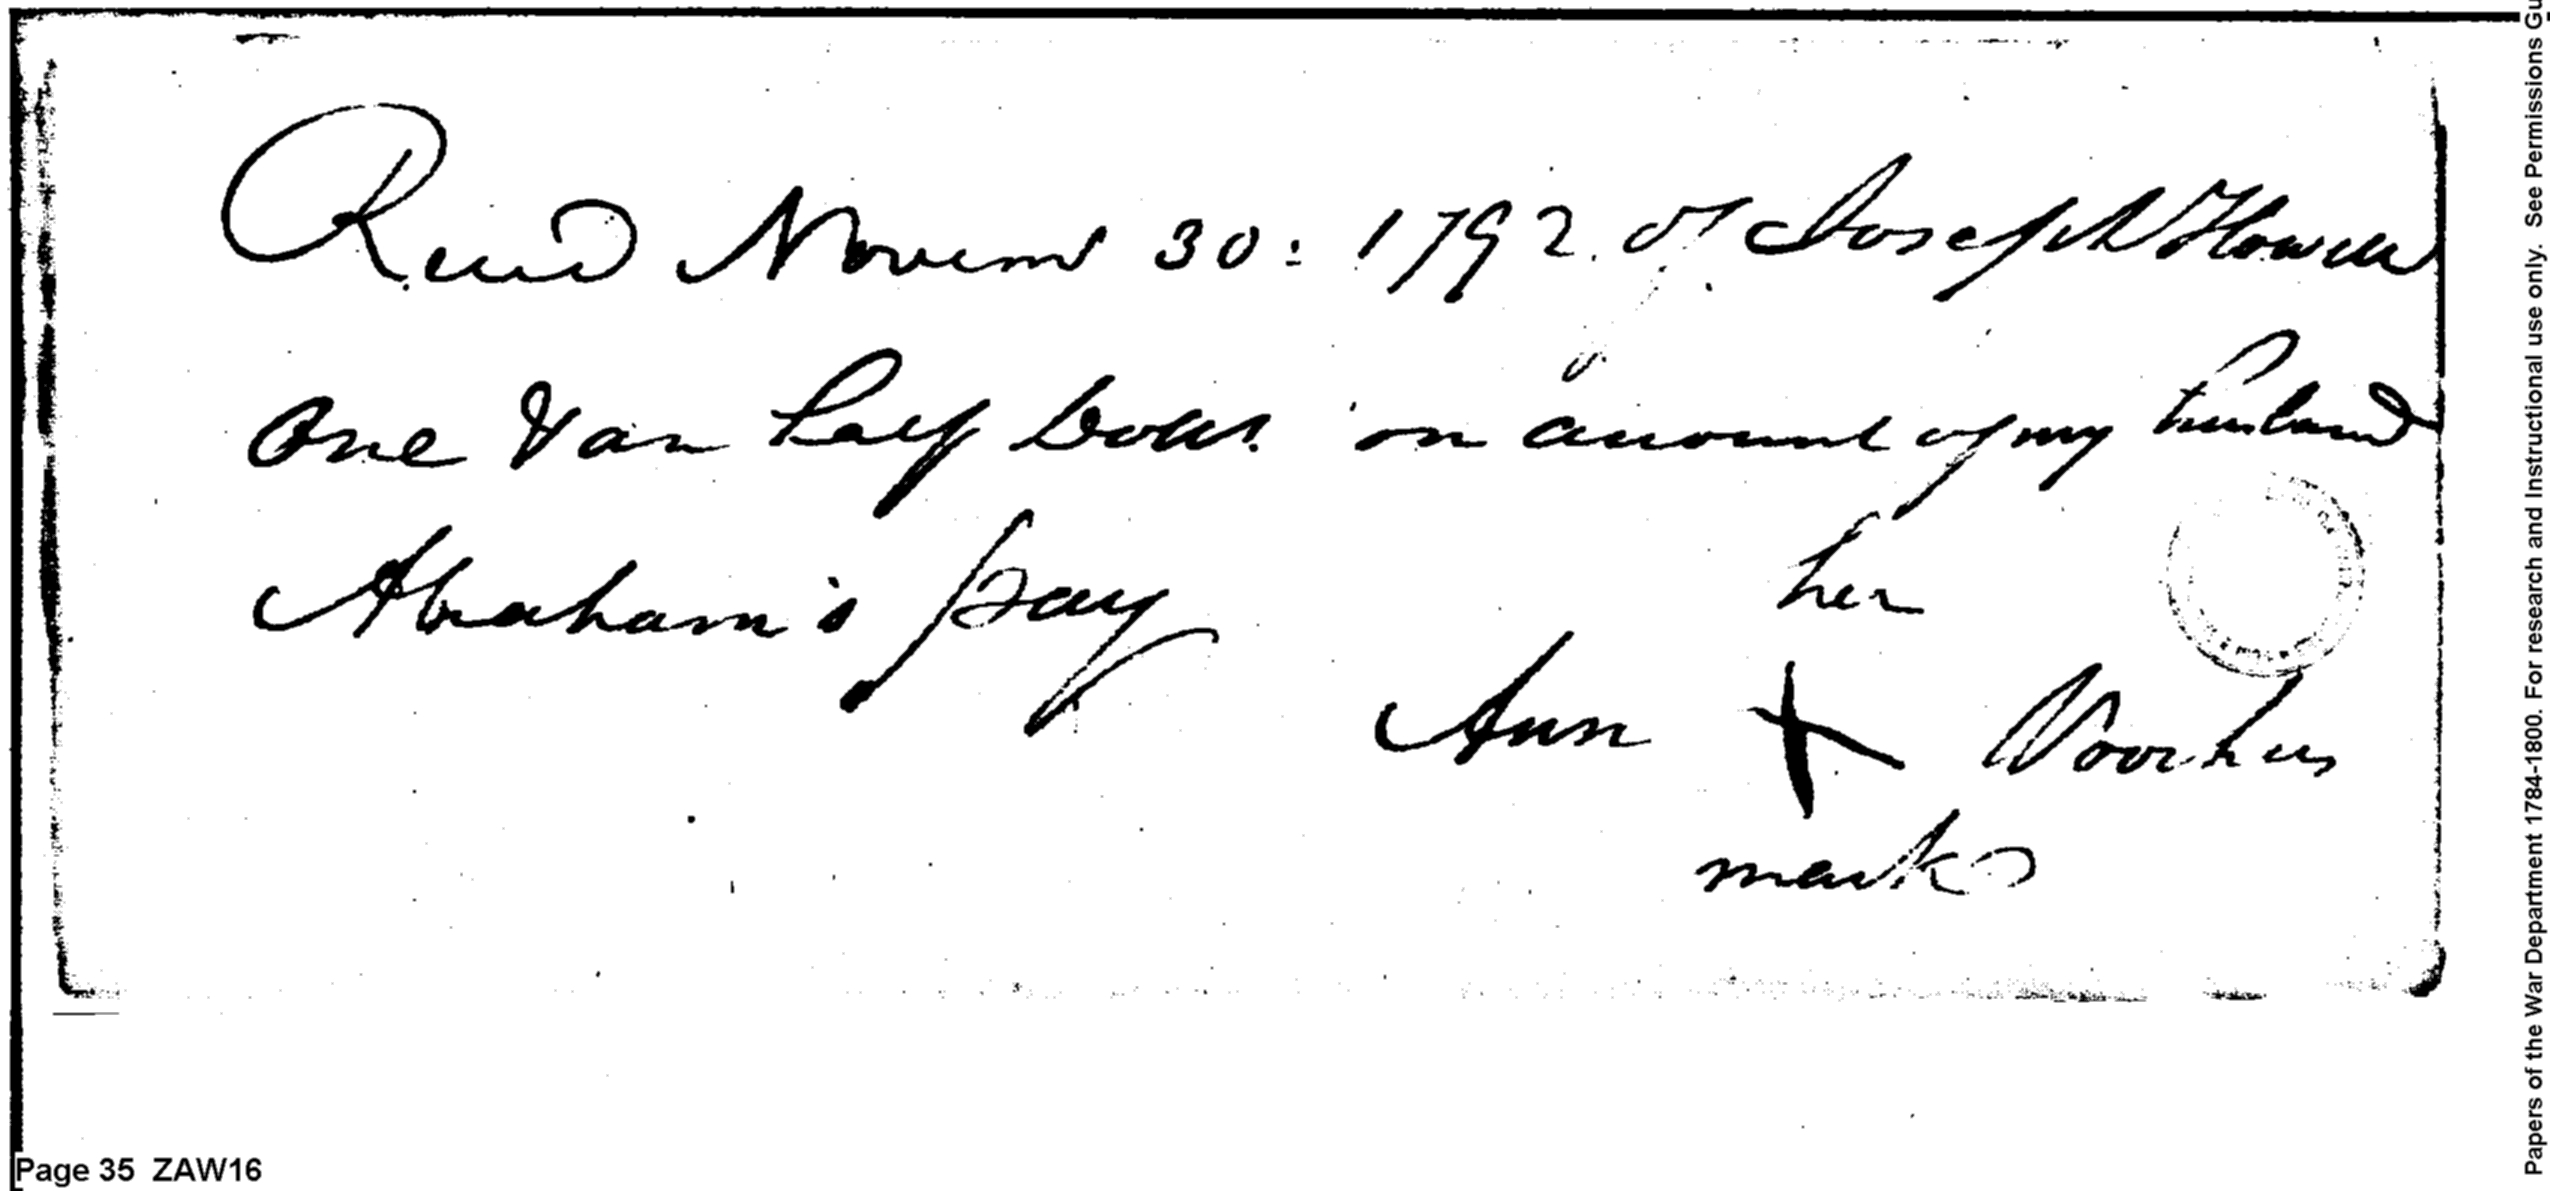 Recd Novem 30: 1792. of Joseph Howell
One & an half Dollars on account of my husband
Abraham's pay
her
Ann X Voorhees
mark
Page 35 ZAW16
Papers of the War Department 1784-1800. For research and Instructional use only. See Permissions Gu